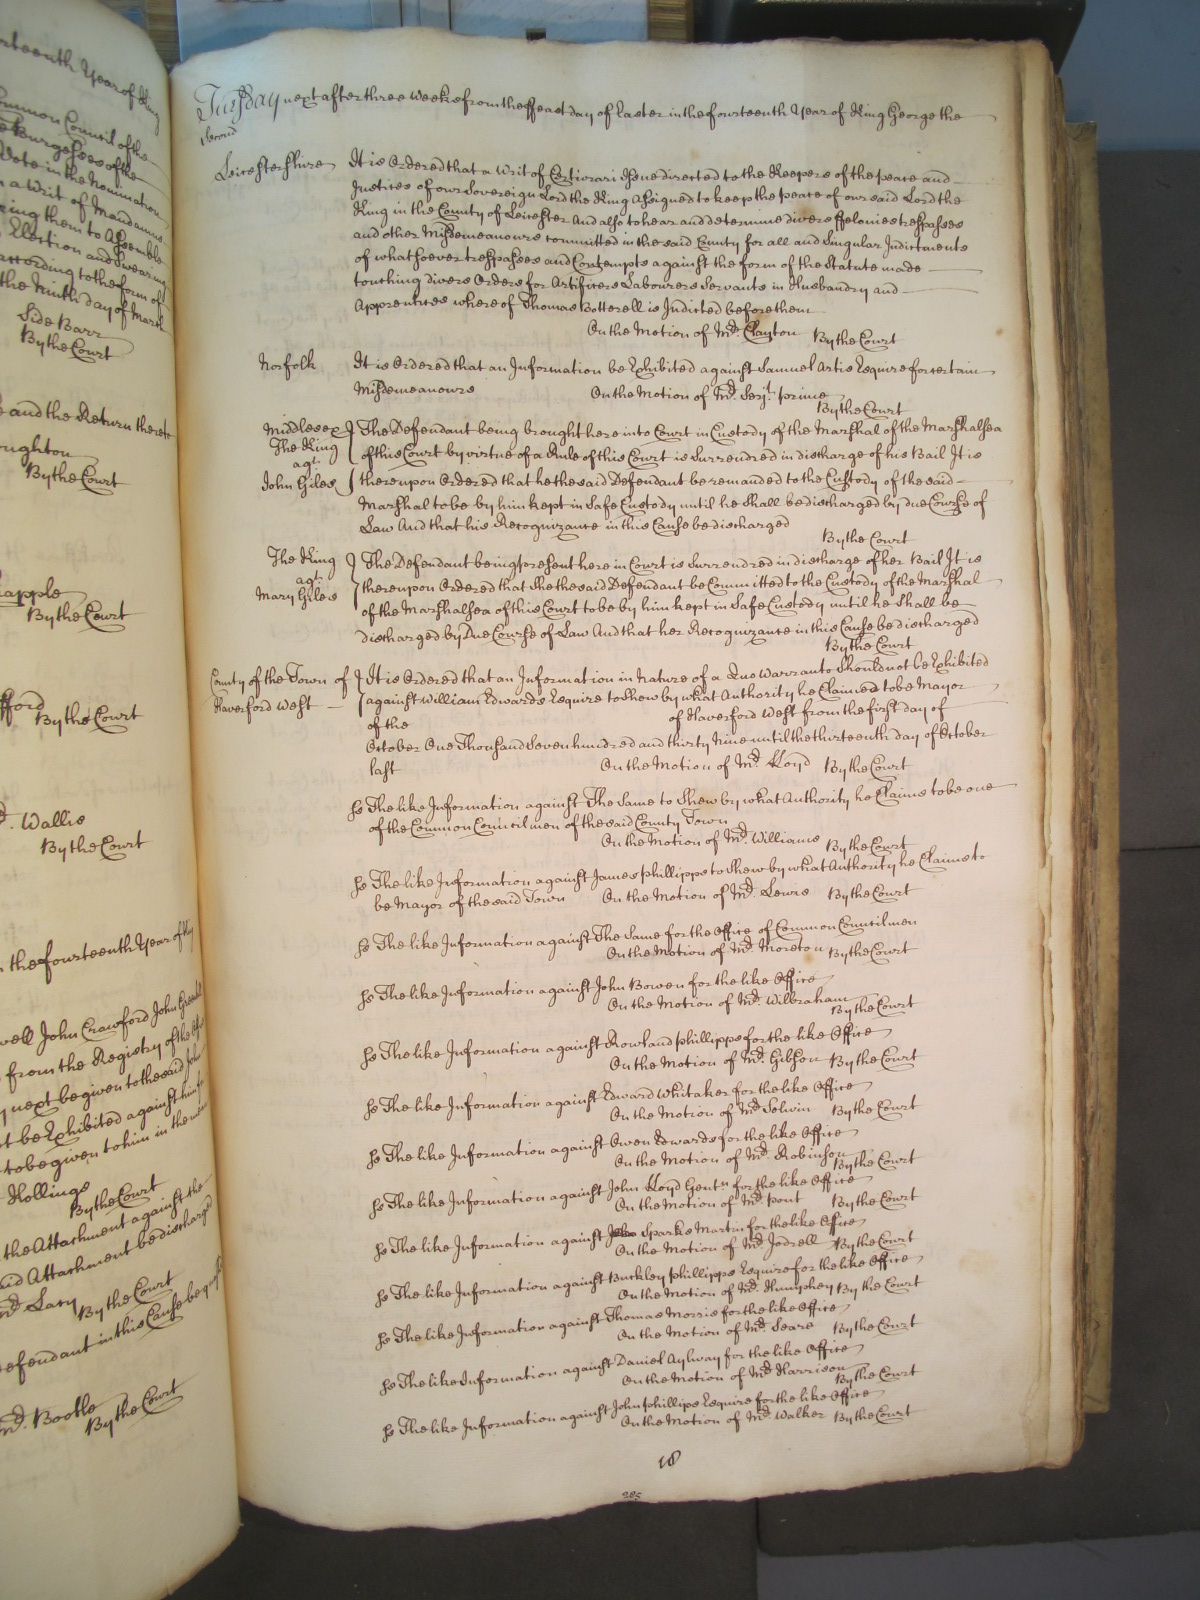 rteenth Year of King
Common Council of the
Burgesses of the
Vote in the Nomination
a writ of Mandamus
ring them to Assemble
Election and Swearing
according to the form of
the Ninth day of March
Side Barr
By the Court
e and the Return thereto
oughton
By the Court
apple
By the Court
fford
By the Court
Wallis
By the Court
the fourteenth Year of
well John Crawford John
from the Registry of the
next be given to the said John
t be Exhibited against him
to be given to him in the
Hollings
By the Court
the Attachment against the
said Attachment be discharged
Md. Lacy By the Court
Defendant in this Cause be
Md. Bootle
By the Court
Tuesday next after three Weeks from the ffeast day of Easter in the fourteenth Year of King George the
Second
Leicestershire It is Ordered that a Writ of Certiorari issue directed to the Keepers of the peace and
Justices of our Sovereign Lord the King Assigned to keep the peace of our said Lord the
King in the County of Leicester And also to hear and determine divers ffelonies trespasses
and other Misdemeanours committed in the said County for all and Singular Indictments
of whatsoever trespasses and Contempts against the form of the Statute made
touching divers Orders for Artificers Labourers Servants in Husbandry and
Apprentices whereof Thomas Botterell is Indicted before them
On the Motion of Mr. Clayton By the Court
Norfolk It is Ordered that an Information be Exhibited against Samuel Artis Esquire for certain
Misdemeanours On the Motion of Mr. Serjt. prime
By the Court
Middlesex The Defendant being brought here into Court in Custody of the Marshal of the Marshalsea
The King of this Court by virtue of a Rule of this Court is Surrendred in discharge of his Bail It is
agt.
John Giles thereupon Ordered that he the said Defendant be remanded to the Custody of the said
Marshal to be by him kept in Safe Custody until he shall be discharged by due Course of
Law And that his Recognizance in this Cause be discharged
By the Court
The King The Defendant being present here in Court is Surrendred in discharge of her Bail It is
agt. thereupon Ordered that She the said Defendant be Committed to the Custody of the Marshal
Mary Giles of the Marshalsea of this Court to be by him kept in Safe Custody until he shall be
discharged by Due Course of Law And that her Recognizance in this Cause be discharged
By the Court
County of the Town of It is Ordered that an Information in Nature of a Quo Warranto Should not be Exhibited
Haverford West against William Edwards Esquire to Shew by what Authority he Claimed to be Mayor
of the of Haverford West from the first day of
October One Thousand Seven hundred and thirty Nine until the thirteenth day of October
last On the Motion of Mr. Lloyd By the Court
So The like Information against The Same to Shew by what Authority he Claims to be one
of the Common Councilmen of the said County Town
On the Motion of Mr. Williams By the Court
So The like Information against James phillipps to Shew by what Authority he Claims to
be Mayor of the said Town On the Motion of Mr. Lewis By the Court
So The like Information against The Same for the Office of Common Councilmen
On the Motion of Mr. Moreton By the Court
So The like Information against John Bowen for the like Office
On the Motion of Mr. Wilbraham
By the Court
So The like Information against Rowland phillipps for the like Office
On the Motion of Mr. Gibson By the Court
So The like Information against Edward Whitaker for the like Office
On the Motion of Mr. Solwin By the Court
So The like Information against Owen Edwards for the like Office
On the Motion of Mr. Robinson By the Court
So The like Information against John Lloyd Gentn. for the like Office
On the Motion of Mr. pont By the Court
So The like Information against Sparks Martin for the like Office
On the Motion of Mr. Jodrell By the Court
So The like Information against Buckley phillipps Esquire for the like Office
On the Motion of Mr. Humphey By the Court
So The like Information against Thomas Morris for the like Office
On the Motion of Mr. Seare By the Court
So The like Information against Daniel Aylway for the like Office
On the Motion of Mr. Harrison
By the Court
So The like Information against John phillips Esquire for the like Office
On the Motion of Mr. Walker By the Court
18
285